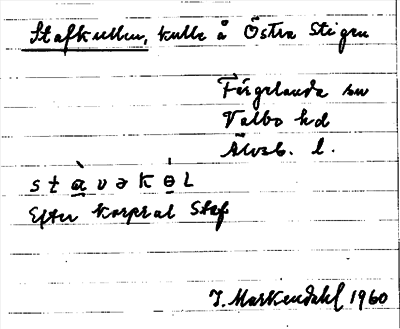 Stafkullen, kulle å Östra Stigen
Färgelanda sn
Valbo hd
Älvsb. l.
s t à̱ v ə k ɵ̱̍ L
Efter Korpral Staf
J. Markendahl 1960